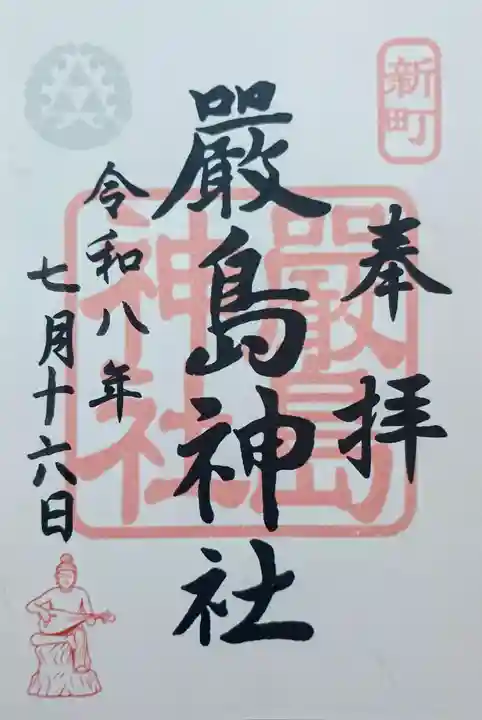 新町
奉拝
嚴島神社
嚴島
神社
令和八年
七月十六日